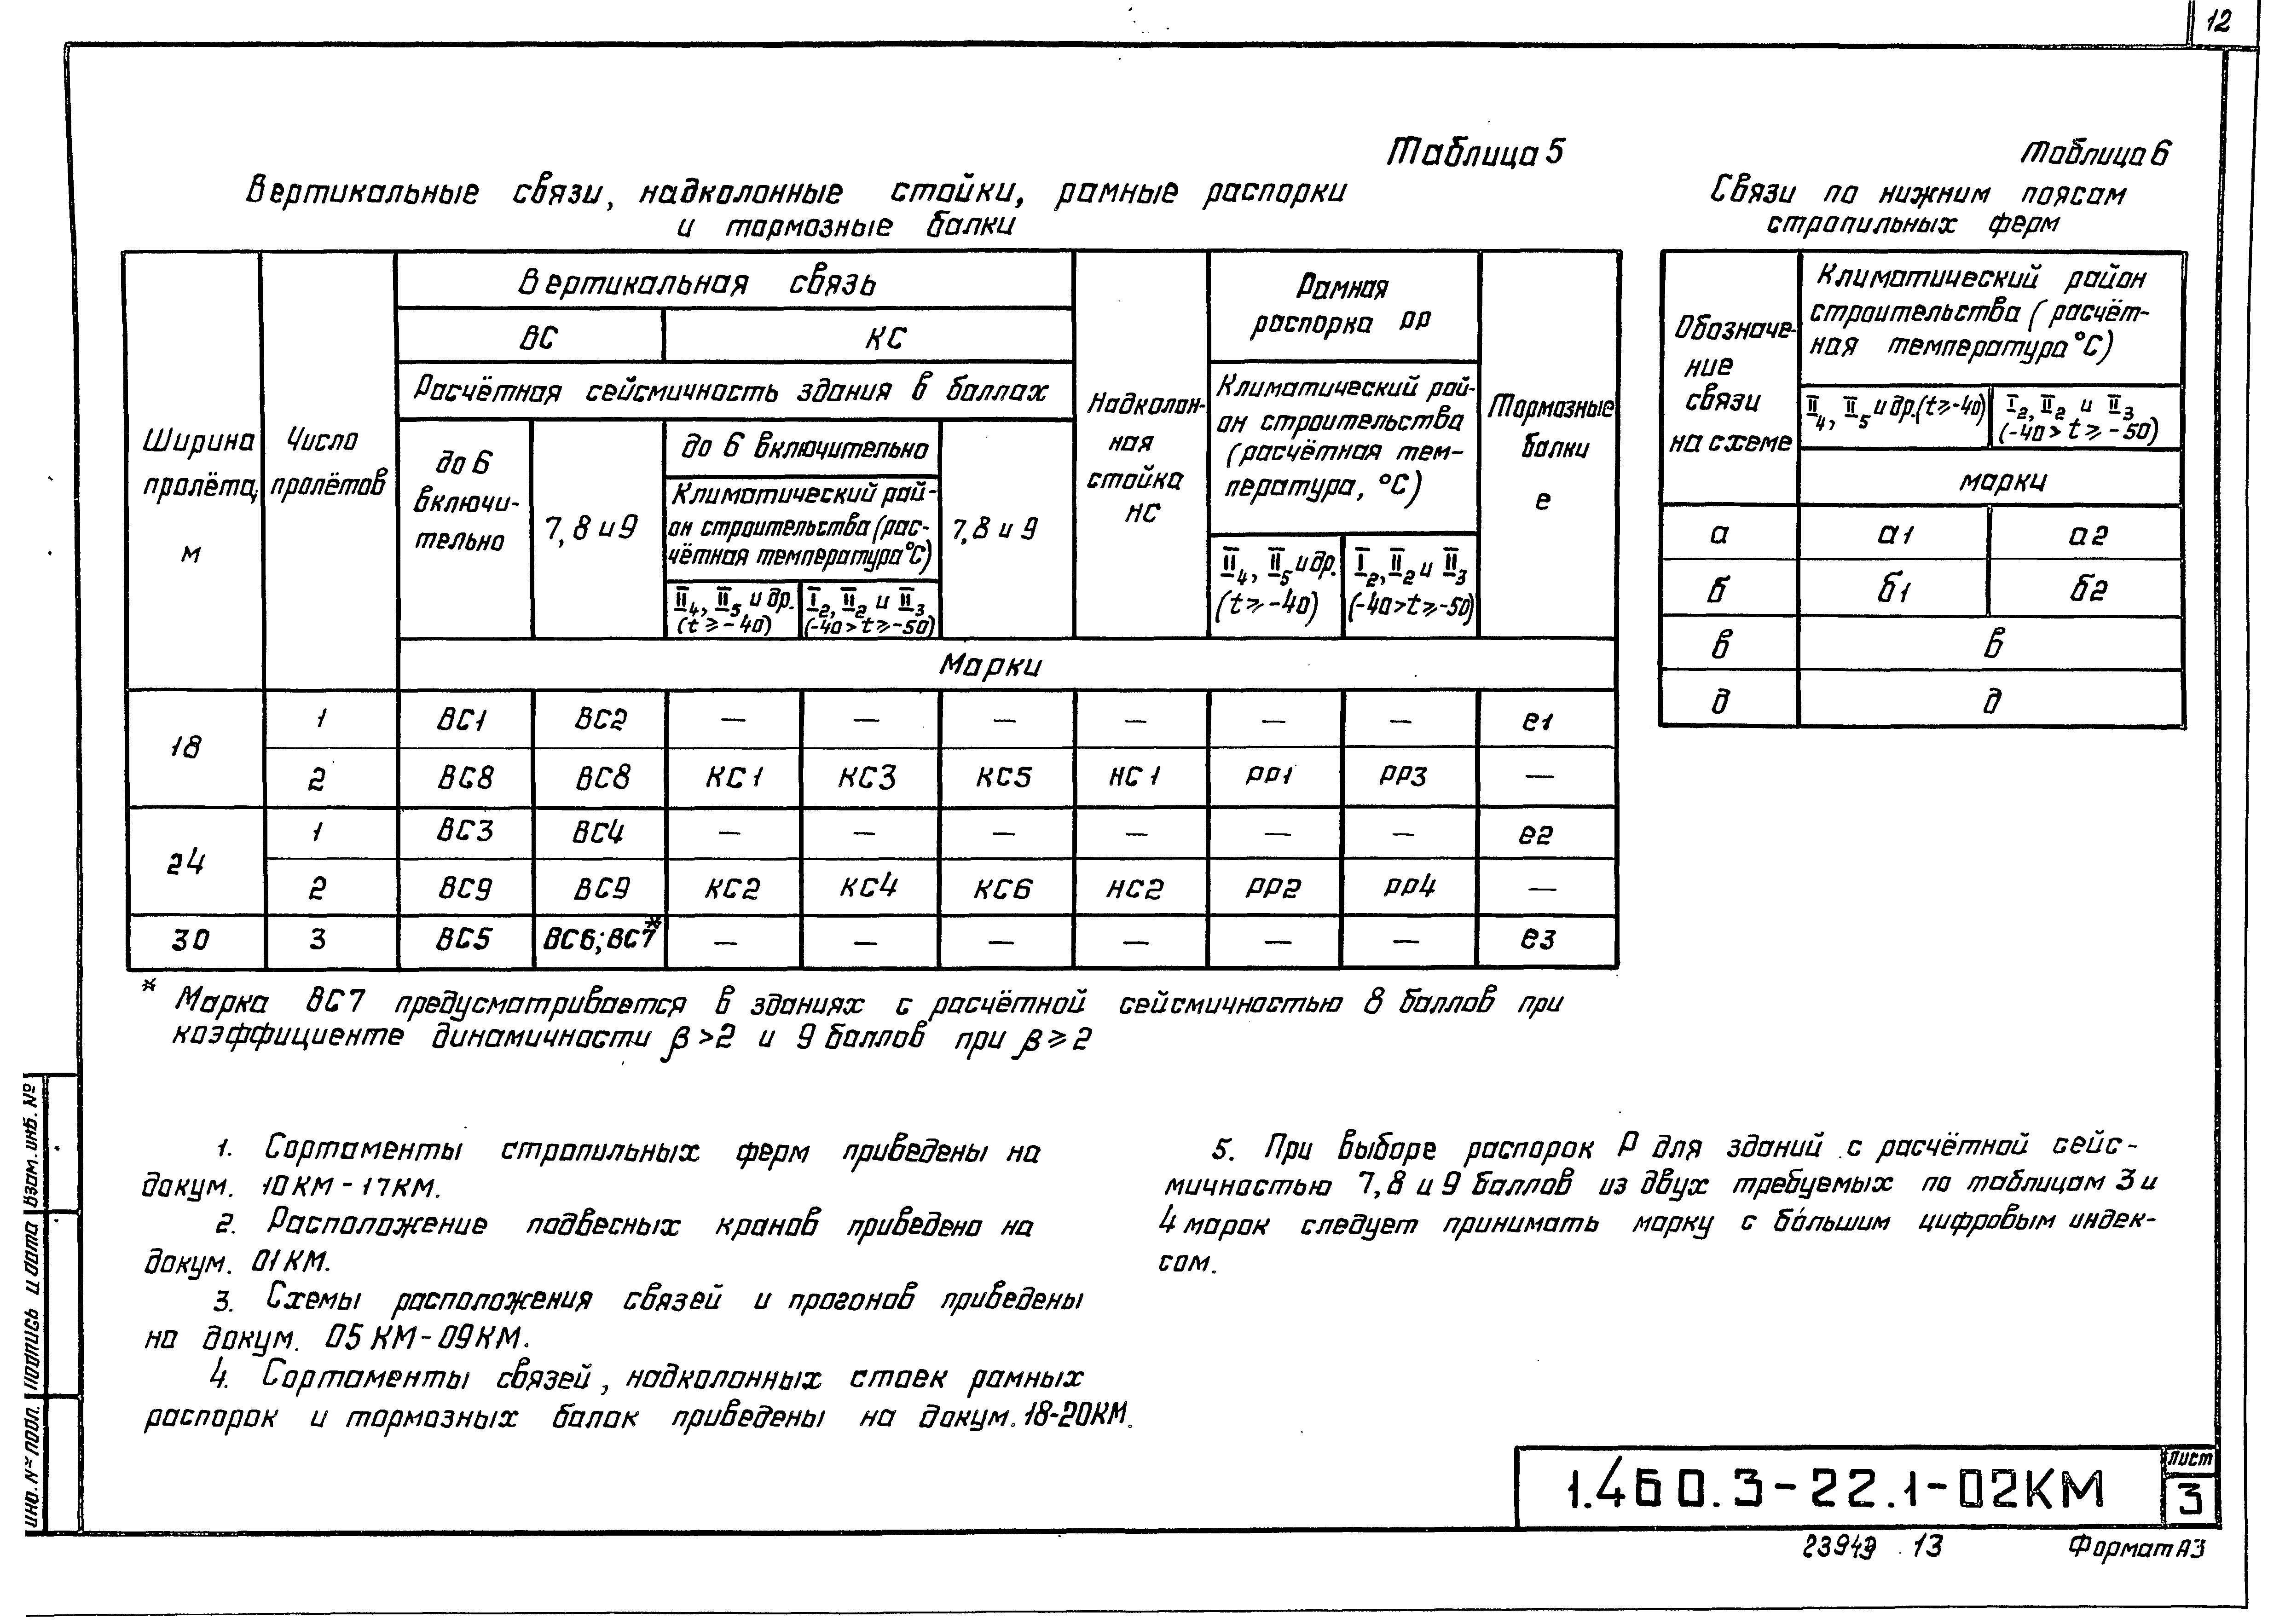 12
Таблица 5
Вертикальные связи, надколонные стойки, рамные распорки
и тормозные балки
Ширина
пролёта,
м
Число
пролётов
Вертикальная связь
ВС
КС
Расчётная сейсмичность здания в баллах
до 6
включи-
тельно
7, 8 и 9
до 6 включительно
Климатический рай-
он строительства (рас-
чётная температура °С)
II4, II5 и др.
(t ≥ -40)
I2, II2 и II3
(-40 > t ≥ -50)
7, 8 и 9
Надколон-
ная
стойка
НС
Рамная
распорка РР
Климатический рай-
он строительства
(расчётная тем-
пература, °С)
II4, II5 и др.
(t ≥ -40)
I2, II2 и II3
(-40 > t ≥ -50)
Тормозные
балки
е
Марки
18 1 ВС1 ВС2 — — — — — — е1
2 ВС8 ВС8 КС1 КС3 КС5 НС1 РР1 РР3 —
24 1 ВС3 ВС4 — — — — — — е2
2 ВС9 ВС9 КС2 КС4 КС6 НС2 РР2 РР4 —
30 3 ВС5 ВС6; ВС7* — — — — — — е3
* Марка ВС7 предусматривается в зданиях с расчётной сейсмичностью 8 баллов при
коэффициенте динамичности β > 2 и 9 баллов при β ≥ 2
Таблица 6
Связи по нижним поясам
стропильных ферм
Обозначе-
ние
связи
на схеме
Климатический район
строительства (расчёт-
ная температура °С)
II4, II5 и др. (t ≥ -40)
I2, II2 и II3
(-40 > t ≥ -50)
марки
а а1 а2
б б1 б2
в в
д д
1. Сортаменты стропильных ферм приведены на
докум. 10КМ - 17КМ.
2. Расположение подвесных кранов приведено на
докум. 01КМ.
3. Схемы расположения связей и прогонов приведены
на докум. 05КМ - 09КМ.
4. Сортаменты связей, надколонных стоек рамных
распорок и тормозных балок приведены на докум. 18-20КМ.
5. При выборе распорок Р для зданий с расчётной сейс-
мичностью 7, 8 и 9 баллов из двух требуемых по таблицам 3 и
4 марок следует принимать марку с бо́льшим цифровым индек-
сом.
Взам. инв. №
Подпись и дата
Инв. № подл.
1.460.3-22.1-02КМ
Лист
3
23949 13
Формат А3